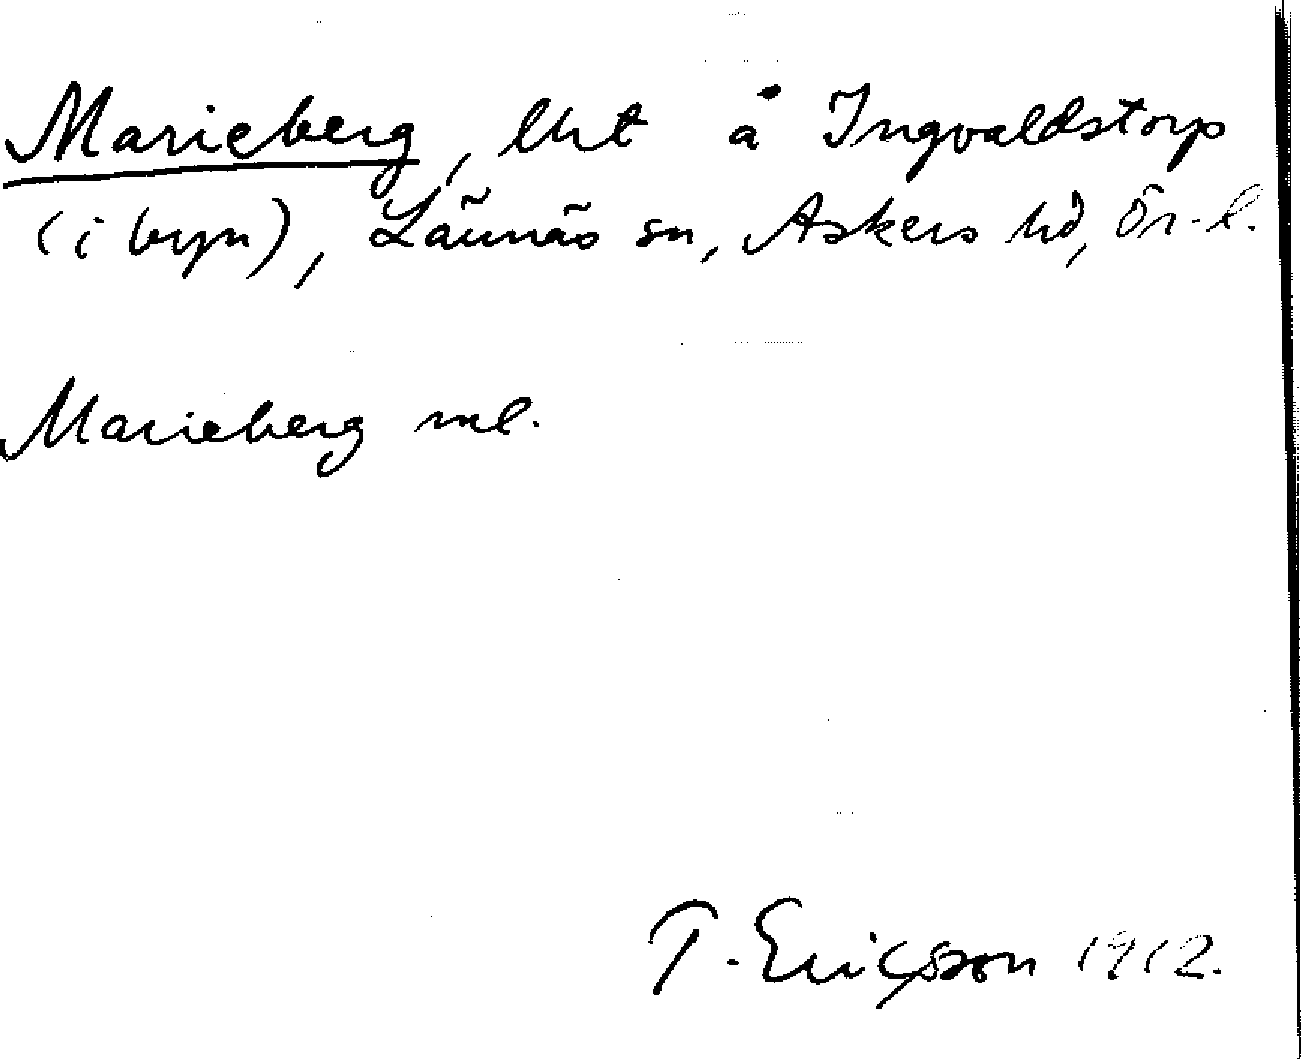 Marieberg, lht å Ingvaldstorp
(i byn), Lännäs sn, Askers hd, Ör-l.
Marieberg ml.
T. Ericsson 1912.